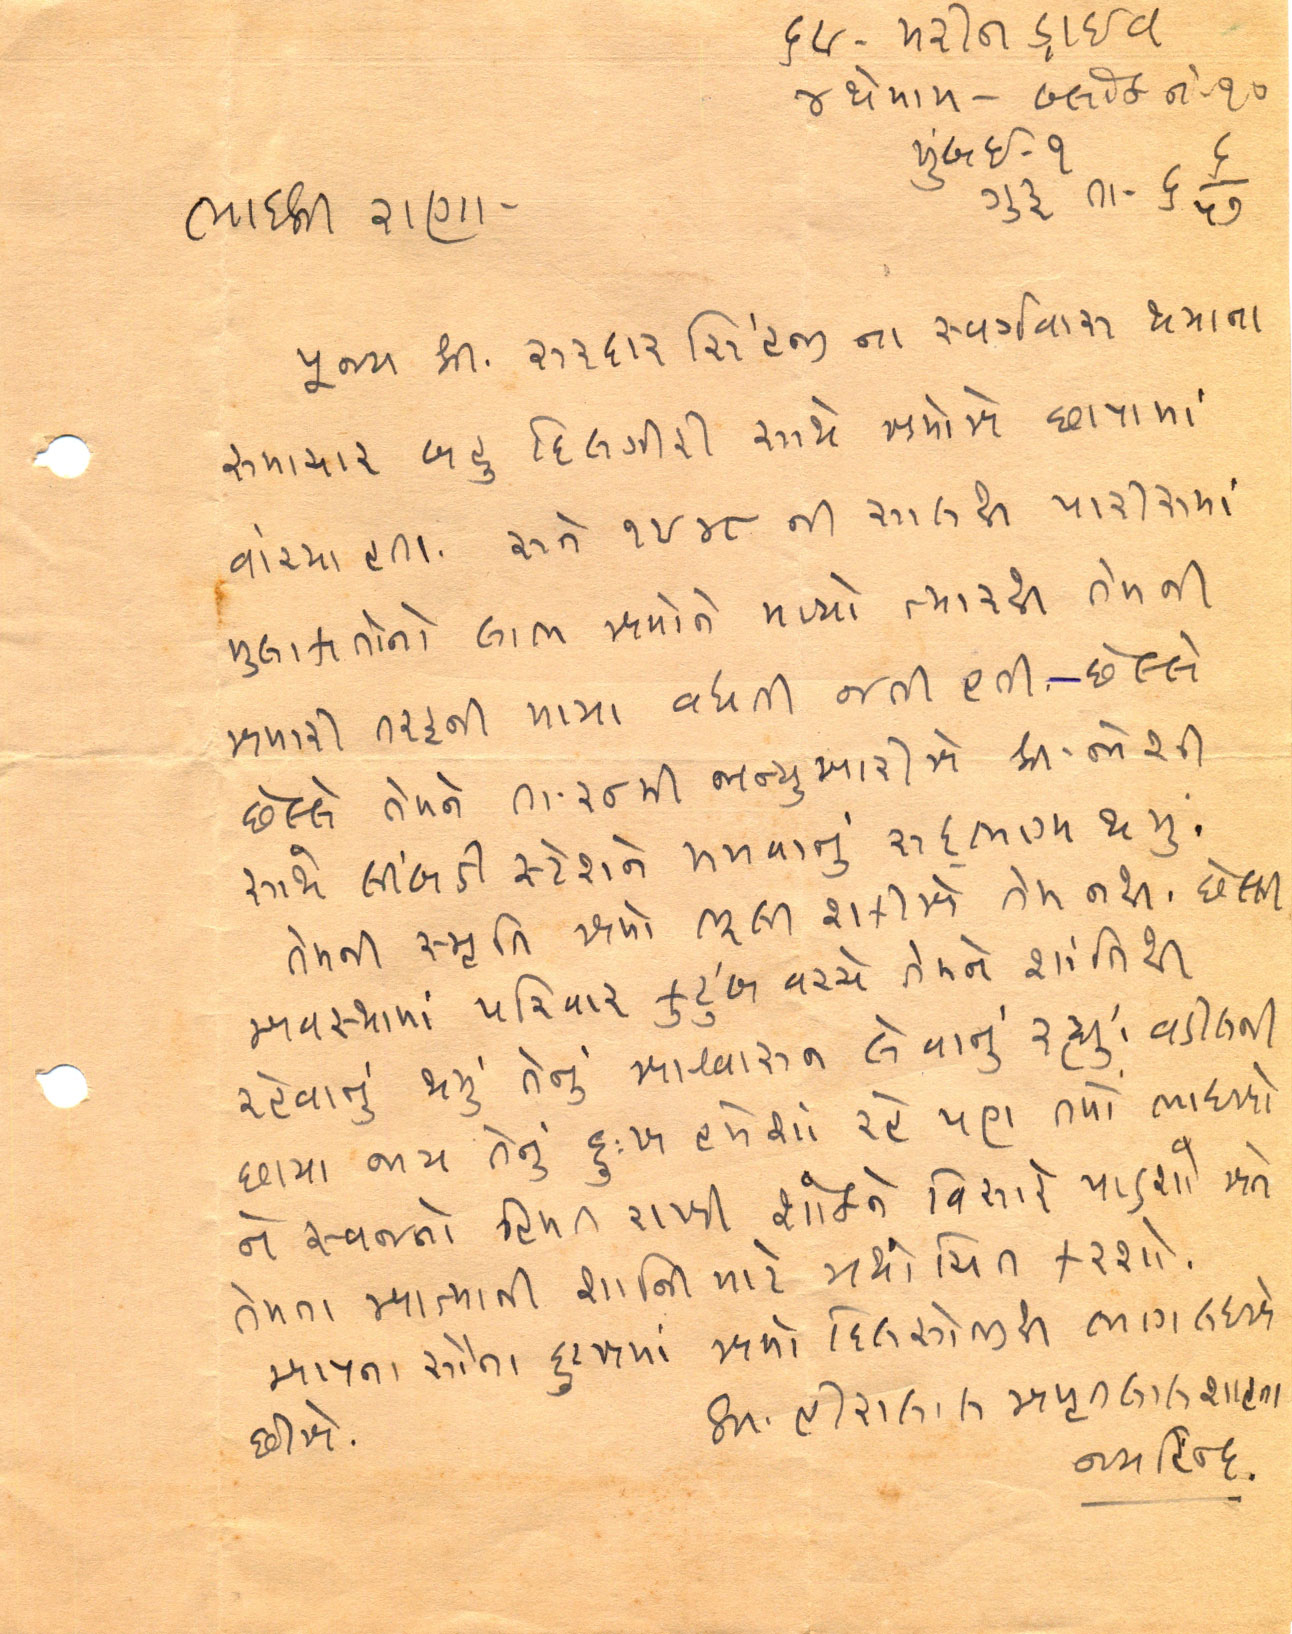 ૬૫- મરીન ડ્રાઈવ
બ્લોક નં-૧૦
મુંબઈ-૧
ગુરૂ તા- ૬/૬/૫૭
ભાઈશ્રી રાણા-
પૂજ્ય શ્રી. સરદારસિંહજી ના સ્વર્ગવાસ થયાના
સમાચાર બહુ દિલગીરી સાથે અમોએ છાપામાં
વાંચ્યા હતા. સને ૧૯૪૮ ની સાલથી પારીસમાં
મુલાકાતોનો લાભ અમોને મળ્યો ત્યારથી તેમની
અમારી તરફની માયા વધતી જતી હતી.- છેલ્લે
છેલ્લે તેમને તા.૨૮મી જાન્યુઆરીએ શ્રી. જોશી
સાથે લીંબડી સ્ટેશને મળવાનું સદ્ભાગ્ય થયું.
તેમની સ્મૃતિ અમો ભૂલી શકીએ તેમ નથી. છેલ્લી
અવસ્થામાં પરિવાર કુટુંબ વચ્ચે તેમને શાંતિથી
રહેવાનું થયું તેનું આશ્વાસન લેવાનું રહ્યું. વડીલની
છાયા જાય તેનું દુ:ખ હંમેશાં રહે પણ તમો ભાઈઓ
ને સ્વજનો હિંમત રાખી શોકને વિસારે પાડશો અને
તેમના આત્માની શાન્તિ માટે યથોચિત કરશો.
આપના સૌના દુઃખમાં અમો દિલસોજીથી ભાગ લઈએ
છીએ.
લી. હીરાલાલ અમૃતલાલ શાહના
જયહિન્દ.